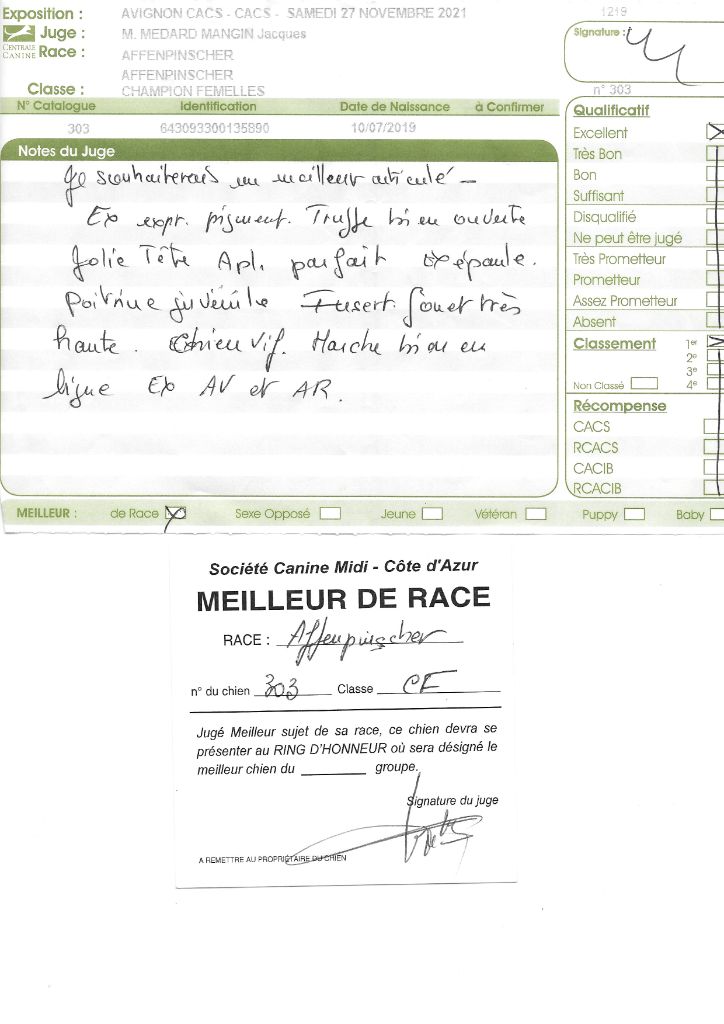 Exposition : AVIGNON CACS - CACS - SAMEDI 27 NOVEMBRE 2021 1219
CENTRALE CANINE
Juge : M. MEDARD MANGIN Jacques
Race : AFFENPINSCHER
AFFENPINSCHER
Classe : CHAMPION FEMELLES
Signature :
n° 303
N° Catalogue Identification Date de Naissance à Confirmer
303 643093300135890 10/07/2019
Notes du Juge
Je souhaiterais un meilleur articulé -
Ex expr. pigment. Truffe bien ouverte
Jolie Tête Apl. parfait Ex épaule.
Poitrine juvénile Insert. fouet très
haute. Chien vif. Marche bien en
ligne Ex AV et AR.
Qualificatif
Excellent
Très Bon
Bon
Suffisant
Disqualifié
Ne peut être jugé
Très Prometteur
Prometteur
Assez Prometteur
Absent
Classement 1er
2e
3e
Non Classé 4e
Récompense
CACS
RCACS
CACIB
RCACIB
MEILLEUR : de Race Sexe Opposé Jeune Vétéran Puppy Baby
Société Canine Midi - Côte d'Azur
MEILLEUR DE RACE
RACE : Affenpinscher
n° du chien 303 Classe CF
Jugé Meilleur sujet de sa race, ce chien devra se
présenter au RING D'HONNEUR où sera désigné le
meilleur chien du groupe.
Signature du juge
A REMETTRE AU PROPRIÉTAIRE DU CHIEN